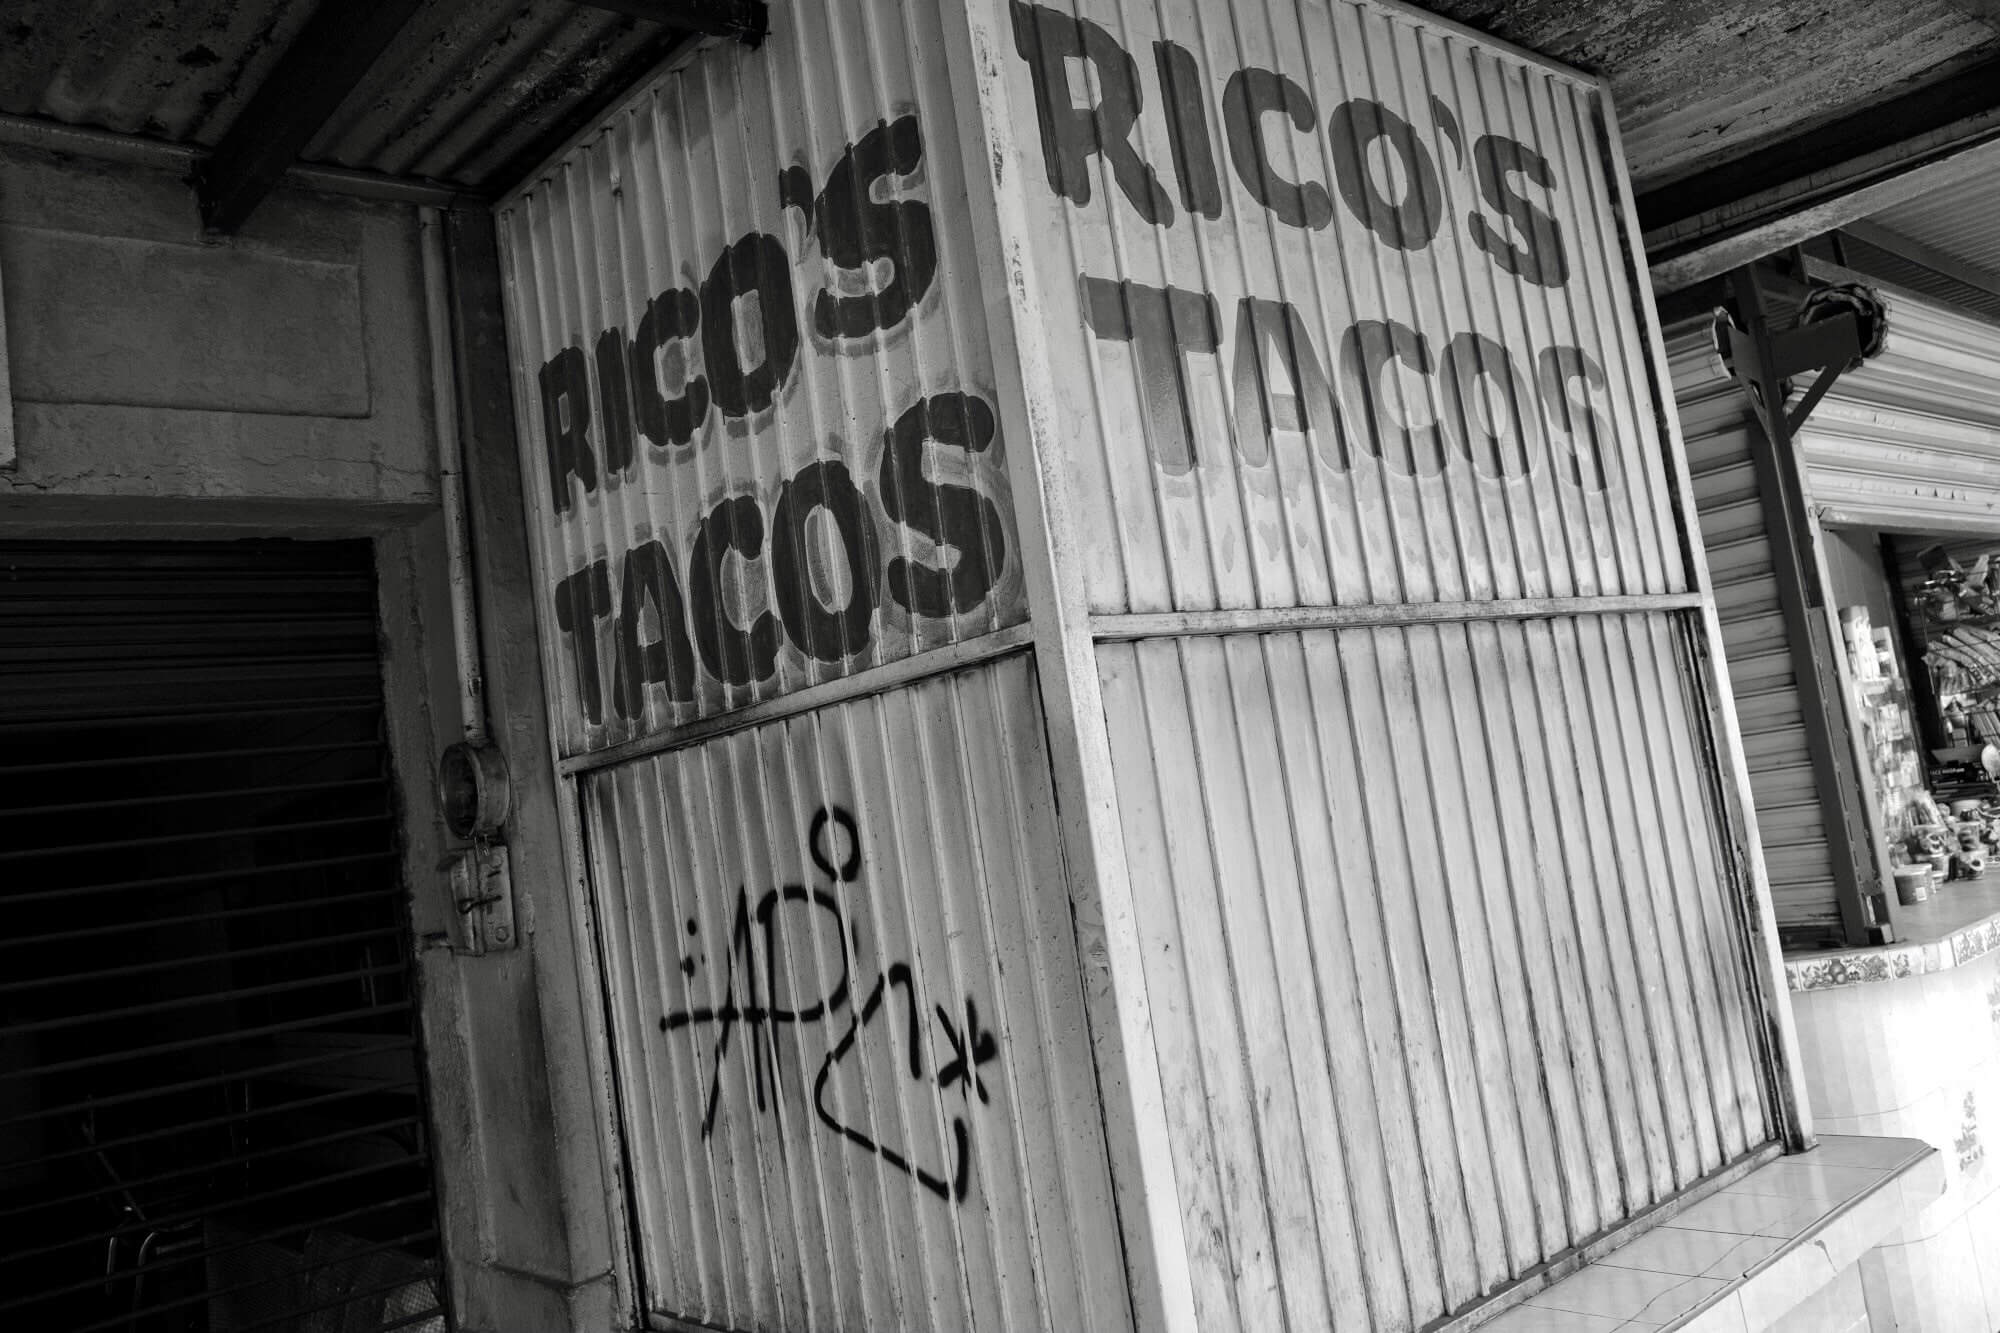 RICO'S
TACOS
RICO'S
TACOS